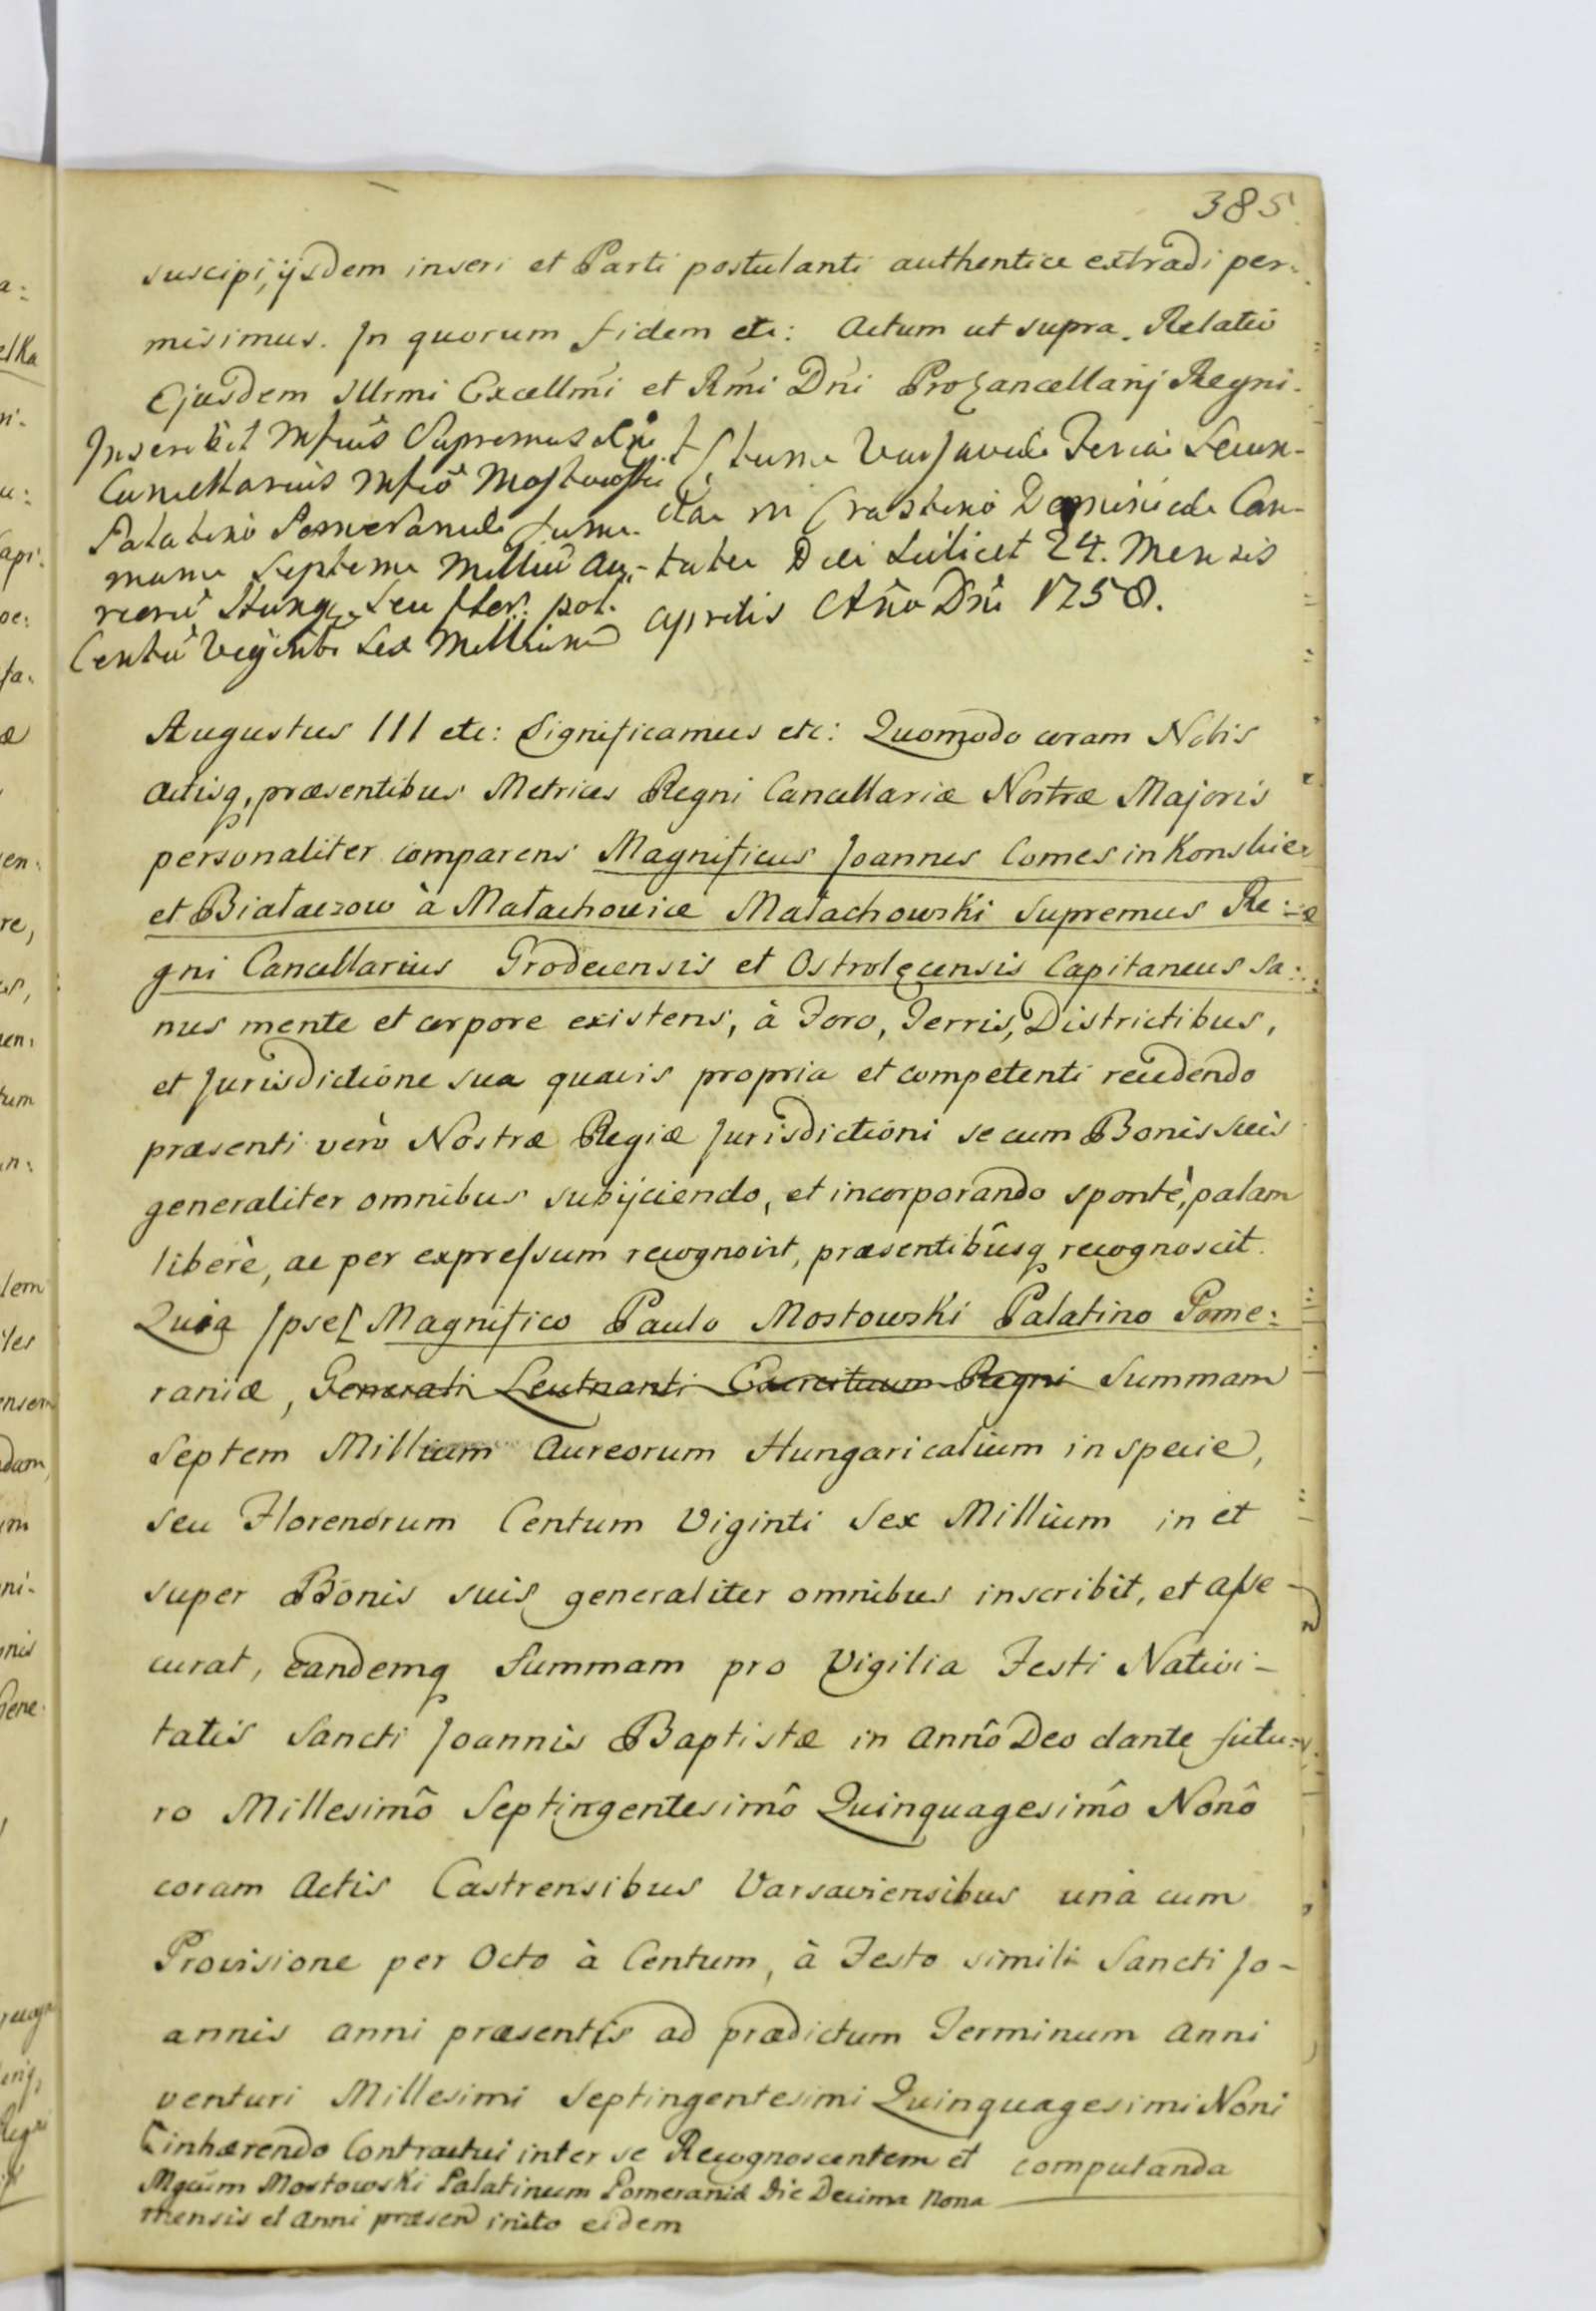 385
suscipi, ijsdem inseri et Parti postulanti authentice extradi per:
misimus. In quorum fidem etc: Actum ut supra. Relatio
Ejusdem Illrmi Excellmi et Rmi Dni ProCancellarij Regni.
Inscribit Mfcus Supremus
Cancellarius Mfco Mostowski
Palatino Pomeraniae summ
mam Septem Milliu Au
reoru Hung. seu flor. pol.
Centu Viginti Sex Millium
Actum Varsaviae Feria Secun-
da in Crastino Dominicae Can-
tate Die Scilicet 24. Mensis
Aprilis Año Dni 1758.
Augustus III etc: Significamus etc: Quomodo coram Nobis
Actisq, præsentibus Metrices Regni Cancellariæ Nostræ Majoris
personaliter comparens Magnificus Joannes Comes in Konskie
et Białaczow à Małachowice Małachowski Supremus Re:
gni Cancellarius Grodecensis et Ostrołęcensis Capitaneus Sa:
nus mente et corpore existens, à Foro, Terris, Districtibus,
et Jurisdictione sua quavis propria et competenti recedendo
præsenti verò Nostræ Regiæ Jurisdictioni se cum Bonis suis
generaliter omnibus subijciendo, et incorporando spontè, palam
liberè, ac per expressum recognovit, præsentibûsq recognoscit.
Quia Ipse Magnifico Paulo Mostowski Palatino Pome:
raniæ, Generali Leutnanti Exercituum Regni Summam
Septem Millium Aureorum Hungaricalium in specie,
seu Florenorum Centum Viginti Sex Millium in et
super Bonis suis generaliter omnibus inscribit, et asse-
curat, eandemq Summam pro Vigilia Festi Nativi-
tatis Sancti Joannis Baptistæ in Annô Deo dante futu:
ro Millesimô Septingentesimô Quinquagesimô Nonô
coram Actis Castrensibus Varsaviensibus unà cum
Provisione per Octo à Centum, à Festo simili Sancti Jo-
annis anni præsentis ad prædictum Terminum Anni
venturi Millesimi Septingentesimi Quinquagesimi Noni
inhærendo Contractui inter se Recognoscentem et computanda
Mgcum Mostowski Palatinum Pomeraniæ die Decima Nona
mensis et Anni præsen inito eidem